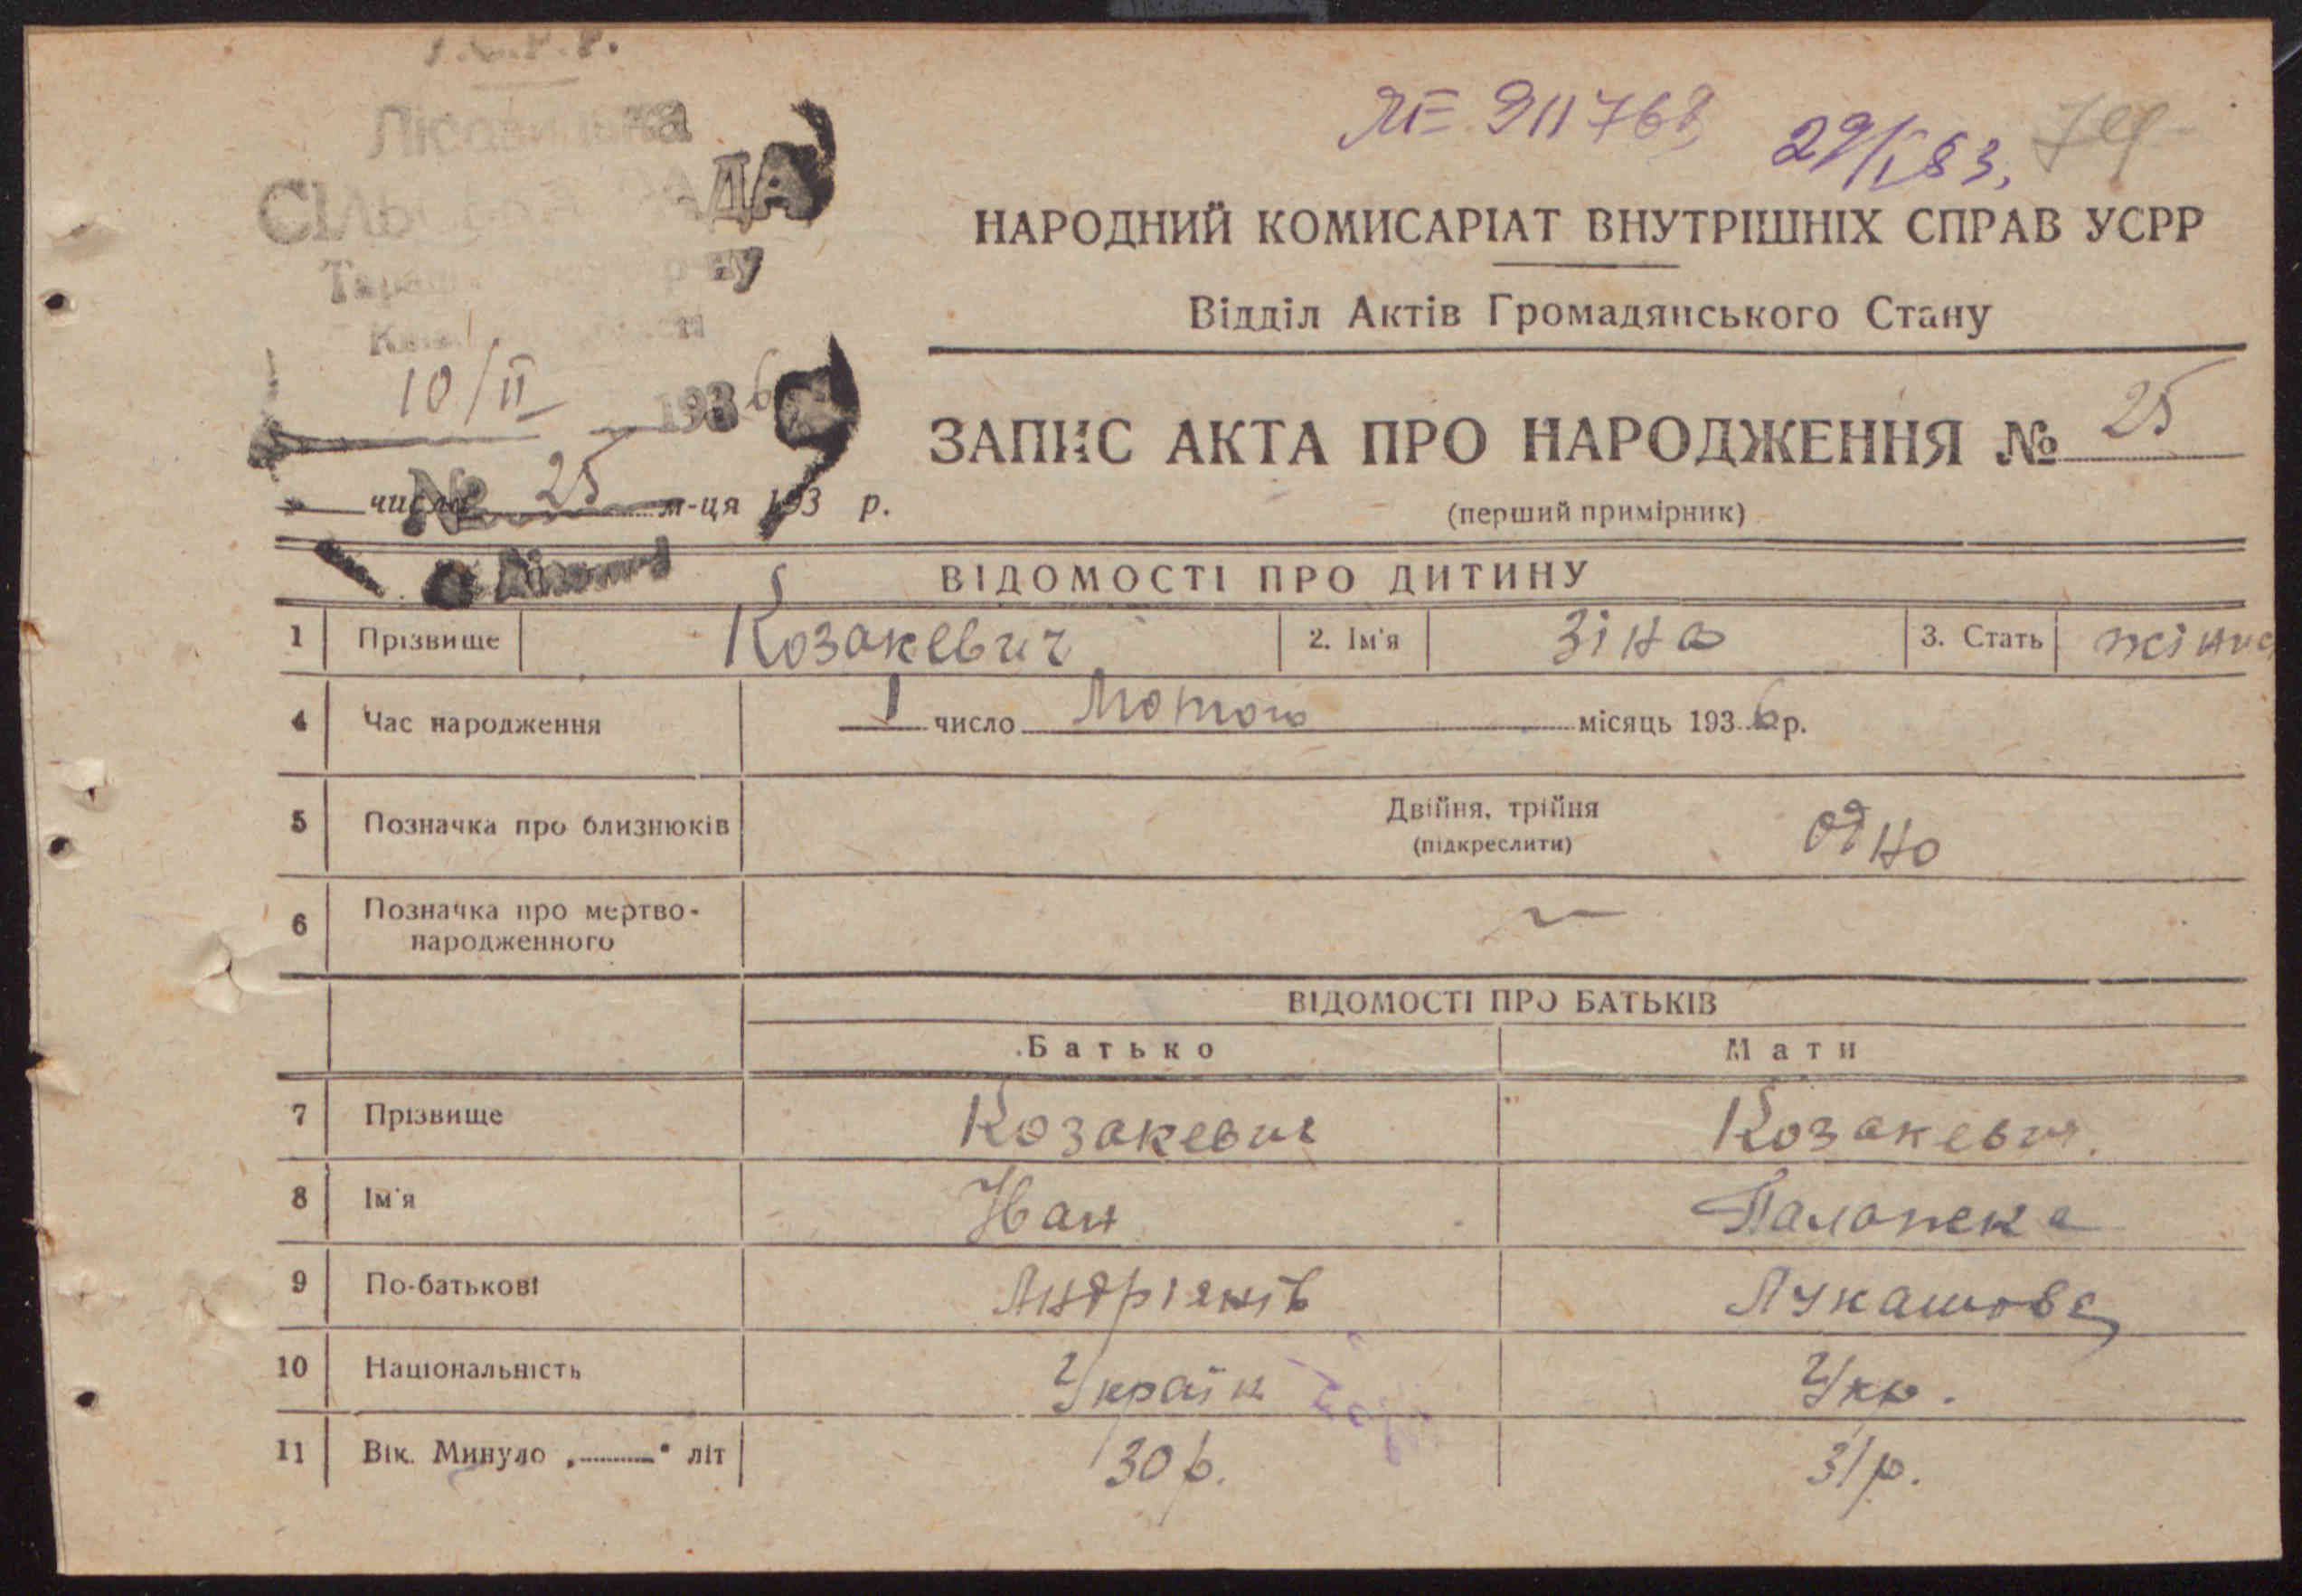 У.С.Р.Р.
СІЛЬСЬКА РАДА
10/ІІ 1936
№ 25
число м-ця 193 р.
911768 29/І 83.
НАРОДНИЙ КОМИСАРІАТ ВНУТРІШНІХ СПРАВ УСРР
Відділ Актів Громадянського Стану
ЗАПИС АКТА ПРО НАРОДЖЕННЯ № 25
(перший примірник)
ВІДОМОСТІ ПРО ДИТИНУ
1 Прізвище Козакевич 2. Ім'я Зіна 3. Стать
4 Час народження 1 число Лютого місяць 1936 р.
5 Позначка про близнюків Двійня, трійня одно
(підкреслити)
6 Позначка про мертво-
народженного
ВІДОМОСТІ ПРО БАТЬКІВ
Батько Мати
7 Прізвище Козакевич Козакевич.
8 Ім'я Іван
9 По-батькові Лукашова
10 Національність Україн Укр.
11 Вік. Минуло „ " літ 30 р. 31 р.